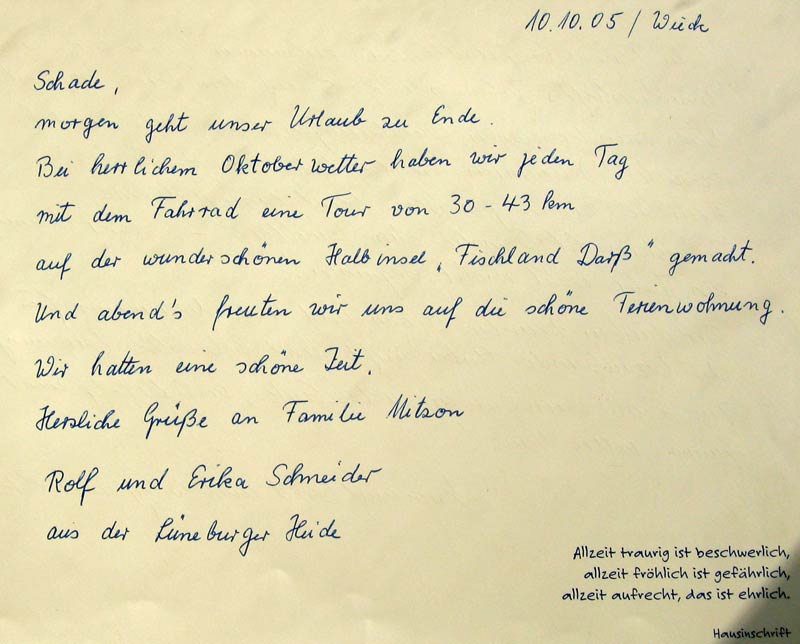 10.10.05 / Wieck
Schade,
morgen geht unser Urlaub zu Ende.
Bei herrlichem Oktoberwetter haben wir jeden Tag
mit dem Fahrrad eine Tour von 30 - 43 km
auf der wunderschönen Halbinsel „Fischland Darß“ gemacht.
Und abend's freuten wir uns auf die schöne Ferienwohnung.
Wir hatten eine schöne Zeit.
Herzliche Grüße an Familie Mitzon
Rolf und Erika Schneider
aus der Lüneburger Heide
Allzeit traurig ist beschwerlich,
allzeit fröhlich ist gefährlich,
allzeit aufrecht, das ist ehrlich.
Hausinschrift